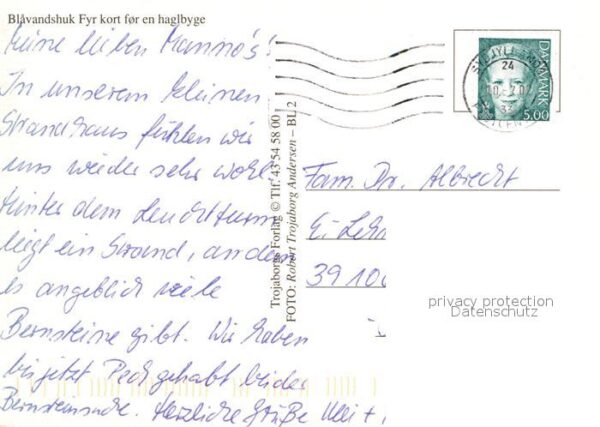 Blåvandshuk Fyr kort før en haglbyge
Meine lieben Manno's!
In unserem kleinen
Strandhaus fühlen wir
uns wieder sehr wohl.
Hinter dem Leuchtturm
liegt ein Strand, an dem
es angeblich viele
Bernsteine gibt. Wir haben
bis jetzt Pech gehabt bei der
Bernsteinsuche. Herzliche Grüße Uli +
Trojaborgs Forlag © Tlf. 43 54 58 00
FOTO: Robert Trojaborg Andersen – BL 2
24
DANMARK
5.00
Fam. Dr. Albrecht
39 10
privacy protection
Datenschutz